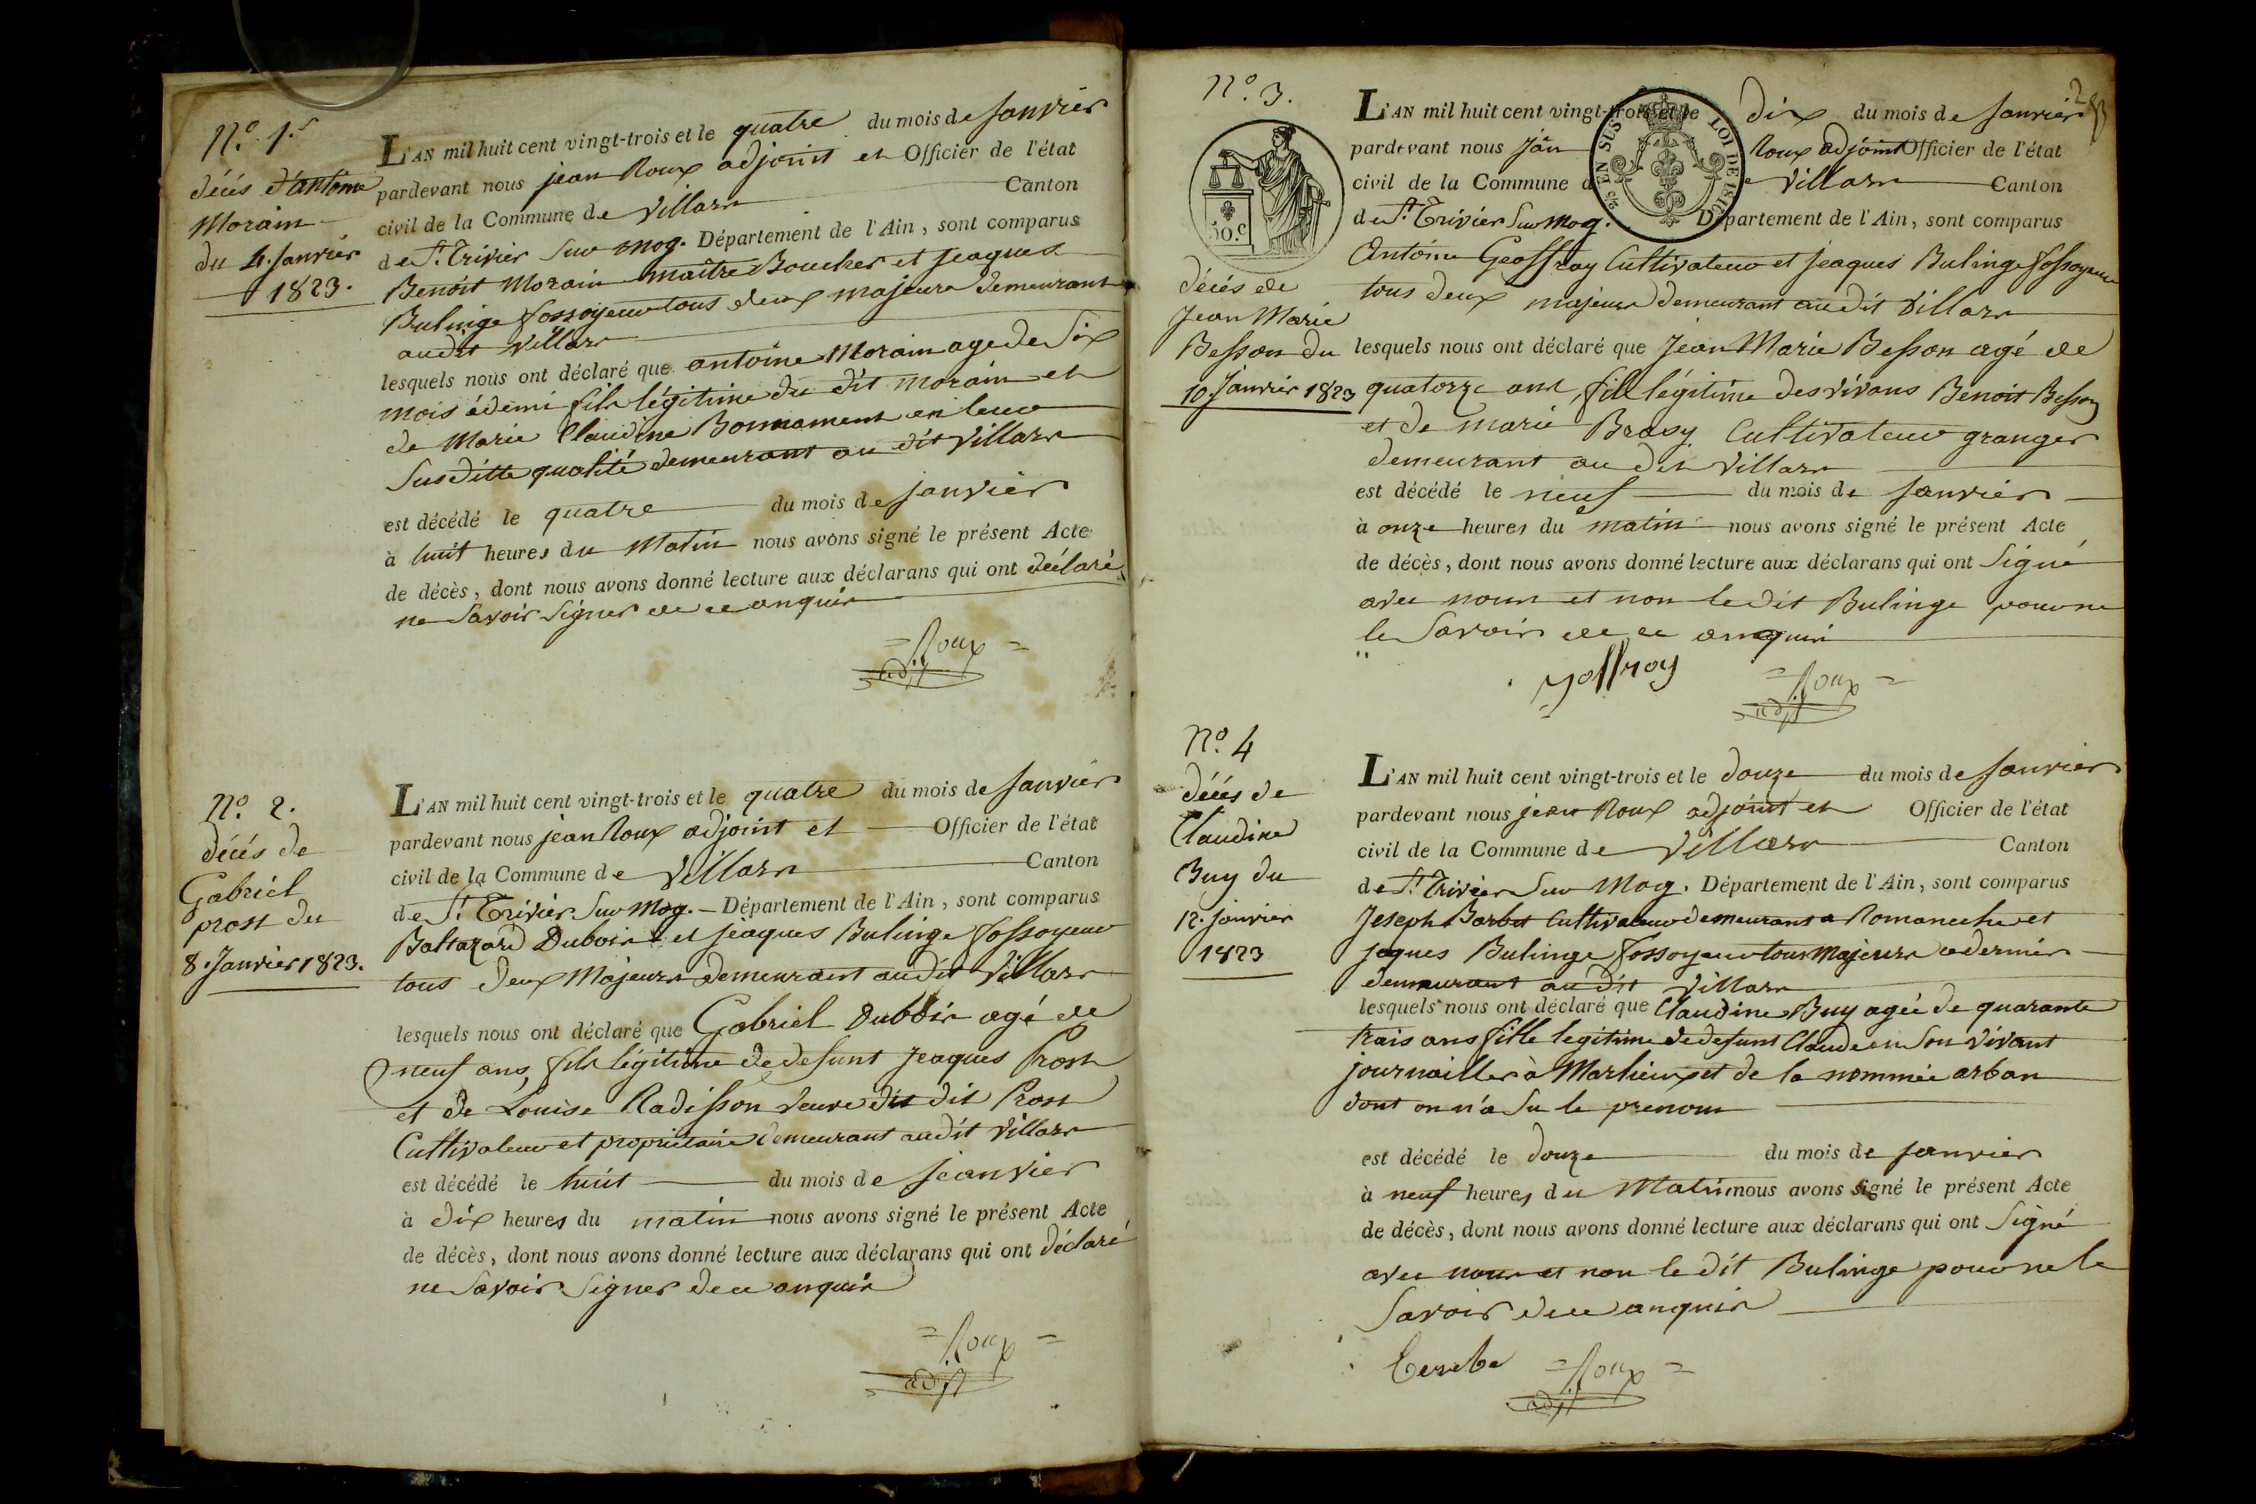 N.° 1.r
décès d'antoine
Morain
du 4. Janvier
1823.
L'AN mil huit cent vingt-trois et le quatre du mois de Janvier
pardevant nous jean Roux adjoint et Officier de l'état
civil de la Commune de Villars Canton
de St. Trivier Sur Mog. Département de l'Ain, sont comparus
Benoit Morain maître Boucher et Jeaques
Bulinge fossoyeur tous deux majeurs demeurant
audit Villars
lesquels nous ont déclaré que antoine Morain age de Six
mois é demi fils légitime du dit Morain et
de Marie Claudine Bonnament en leur
Susditte qualité demeurant au dit Villars
est décédé le quatre du mois de janvier
à huit heures du Matin nous avons signé le présent Acte
de décès, dont nous avons donné lecture aux déclarans qui ont déclaré
ne Savoir Signer de ce enquis
= Roux =
adjt
N.° 2.
décés de
Gabriel
prost du
8. Janvier 1823.
L'AN mil huit cent vingt-trois et le quatre du mois de Janvier
pardevant nous jean Roux adjoint et Officier de l'état
civil de la Commune de Villars Canton
de St. Trivier Sur Mog. Département de l'Ain, sont comparus
Baltazard Dubois et jeaques Bulinge fossoyeur
tous deux Majeurs demeurant au dit Villars
lesquels nous ont déclaré que Gabriel Dubois agé de
neuf ans, fils légitime de defunt Jeaques Prost
et de Louise Radisson veuve dit Prost
Cultivateur et propriétaire demeurant audit Villars
est décédé le huit du mois de jeanvier
à dix heures du matin nous avons signé le présent Acte
de décès, dont nous avons donné lecture aux déclarans qui ont déclaré
ne Savoir Signer de ce enquis
= Roux =
adjt
2
N.° 3.
50.c
EN SUS
LOI DE 1816
décés de
Jean Marie
Besson du
10. Janvier 1823
L'AN mil huit cent vingt-trois et le dix du mois de Janvier
pardevant nous Jean Roux adjoint Officier de l'état
civil de la Commune de Villars Canton
de St. Trivier Sur Mog. Département de l'Ain, sont comparus
Antoine Geoffray Cultivateur et Jeaques Bulinge fossoyeur
tous deux majeurs demeurant au dit Villars
lesquels nous ont déclaré que Jean Marie Besson agé de
quatorze ans, fils légitime des vivans Benoit Besson
et de marie Brasy Cultivateur granger
demeurant au dit Villars
est décédé le neuf du mois de Janvier
à onze heures du matin nous avons signé le présent Acte
de décès, dont nous avons donné lecture aux déclarans qui ont Signé
avec nous et non le dit Bulinge pour ne
le Savoir de ce enquis
joffroy
= Roux =
adjt
N.° 4
décés de
Claudine
Buy du
12. janvier
1823
L'AN mil huit cent vingt-trois et le douze du mois de Janvier
pardevant nous jean Roux adjoint et Officier de l'état
civil de la Commune de Villars Canton
de St. Trivier Sur Mog. Département de l'Ain, sont comparus
Joseph Barbet Cultivateur demeurant a Romaneche et
jaques Bulinge fossoyeur tous Majeurs a dernier
demeurant au dit Villars
lesquels nous ont déclaré que Claudine Buy agée de quarante
trois ans fille legitime de defunt Claude en Son vivant
journailler à Marlieux et de la nommée arban
dont on n'a Su le prenom
est décédé le douze du mois de janvier
à neuf heures du Matin nous avons signé le présent Acte
de décès, dont nous avons donné lecture aux déclarans qui ont Signé
avec nous et non le dit Bulinge pour ne le
Savoir de ce enquis
= Roux =
adjt